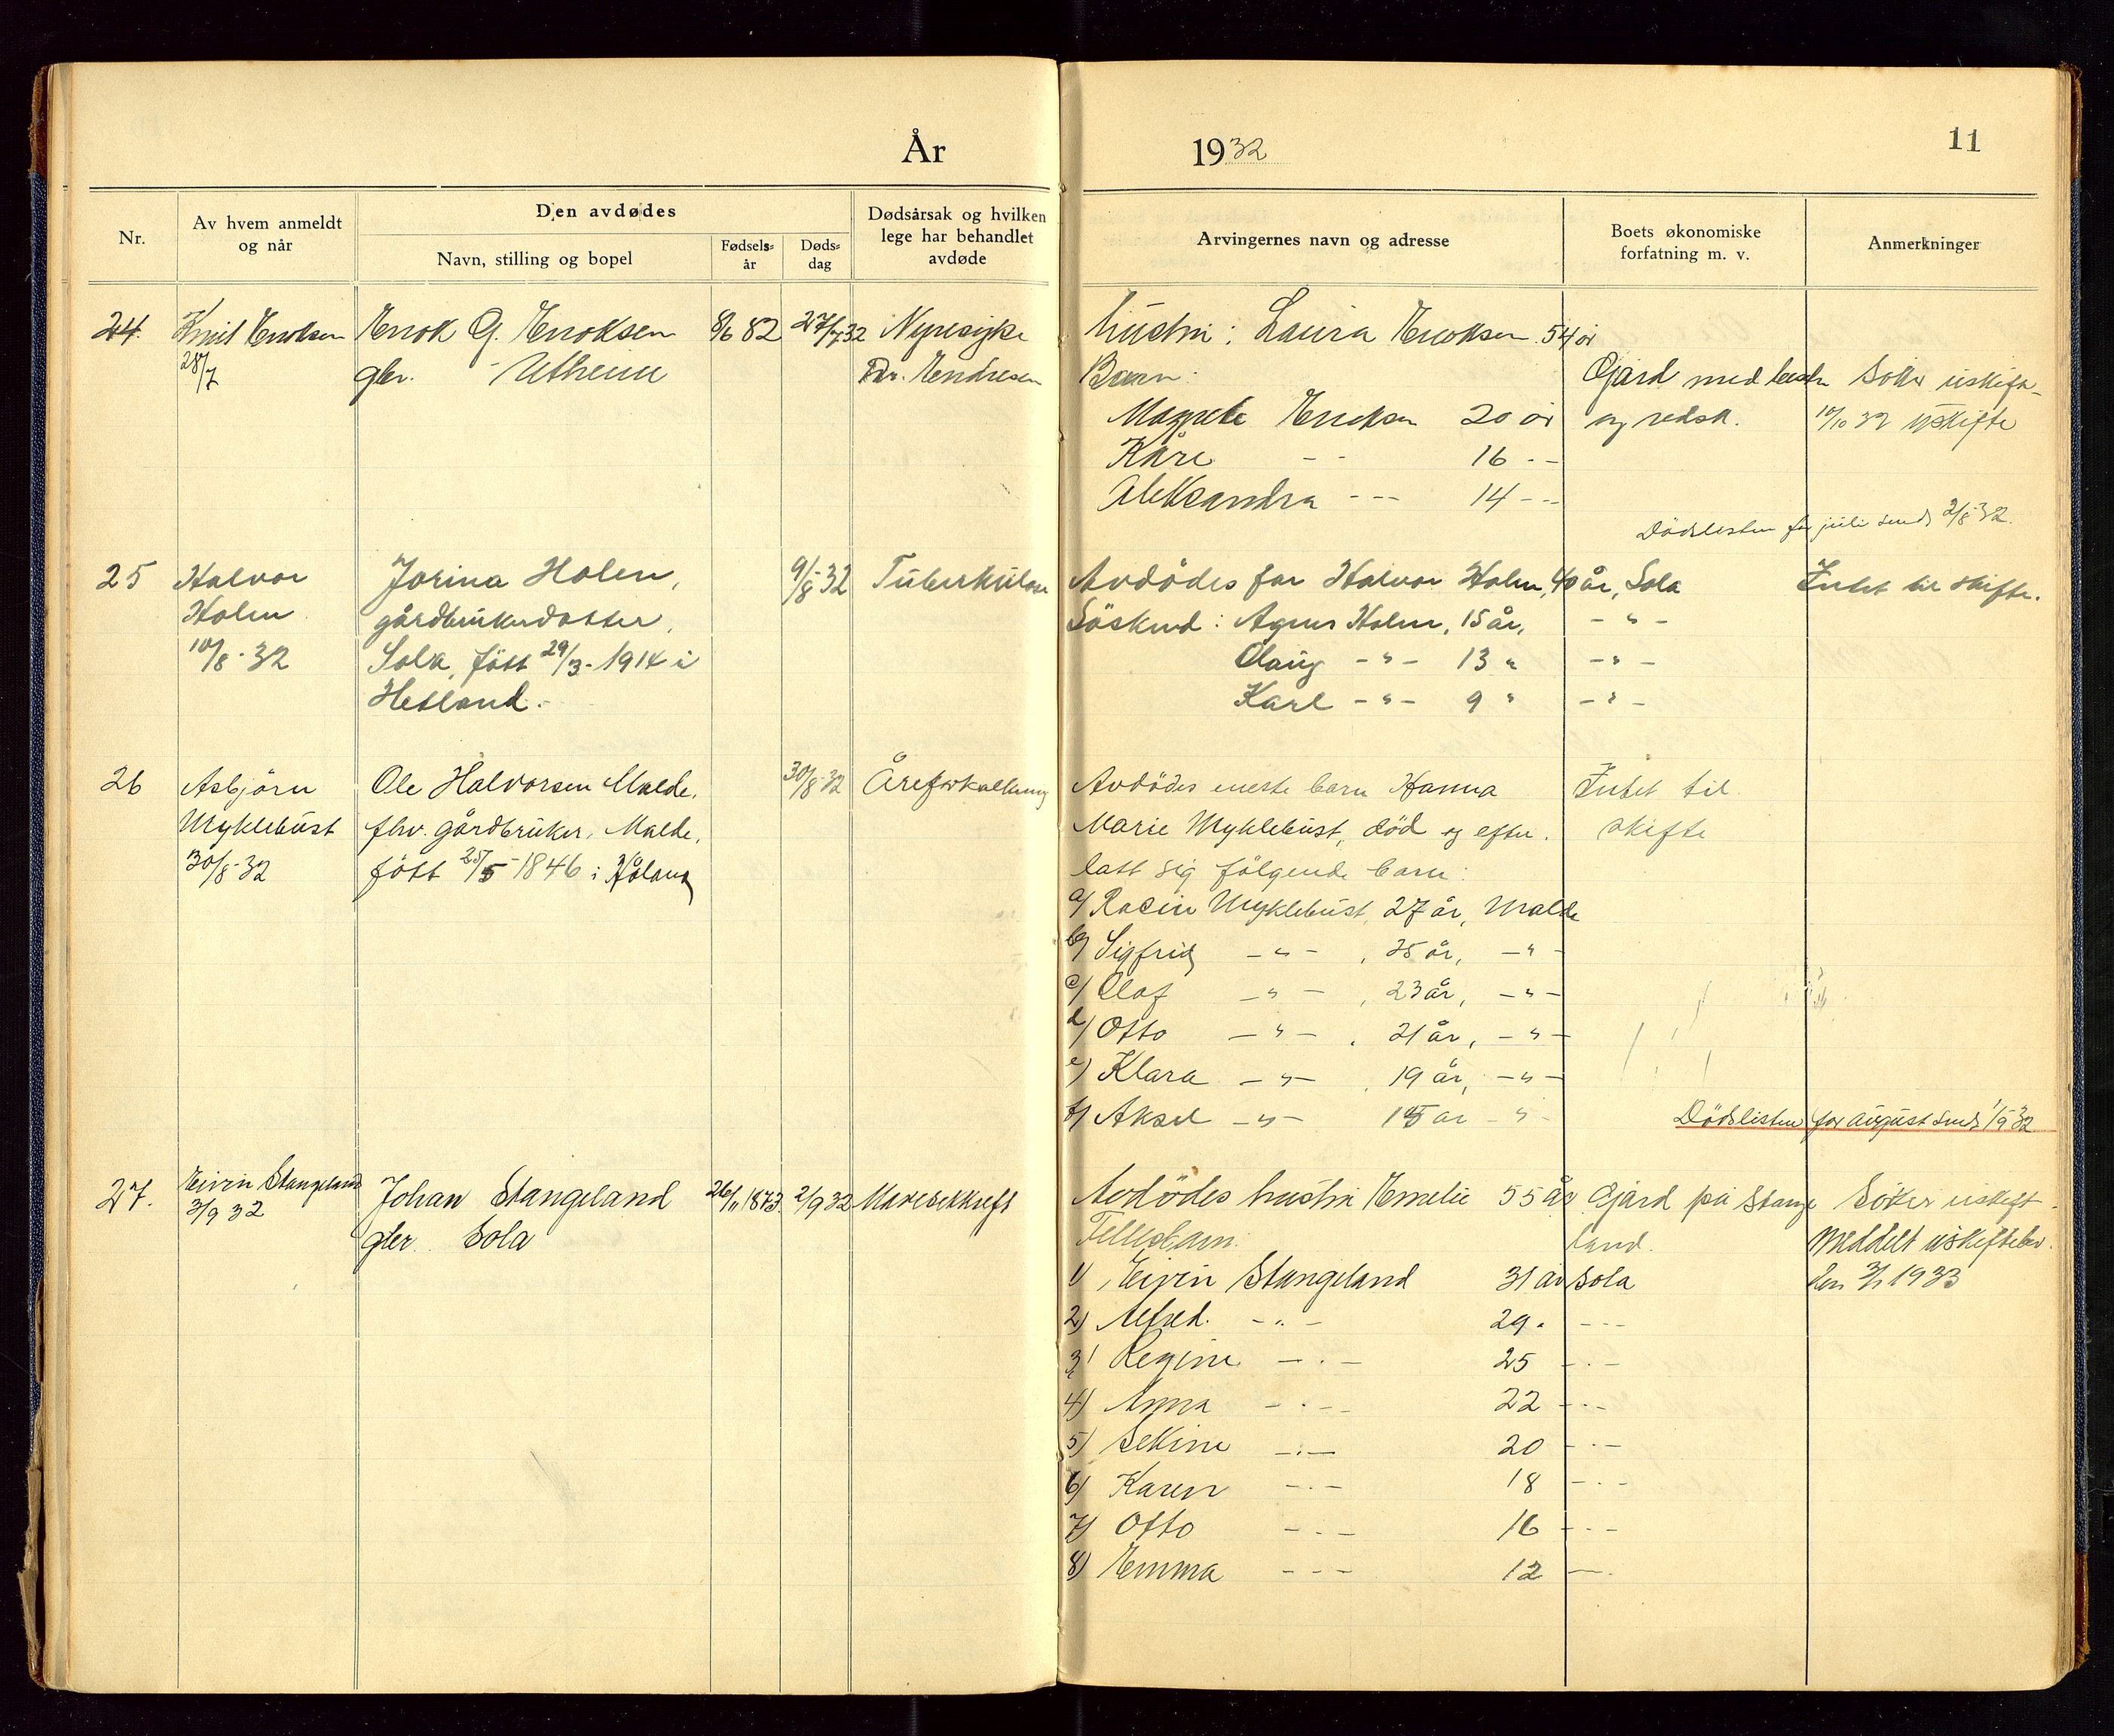 År
1932
11
Nr.
Av hvem anmeldt og når
Den avdødes
Navn, stilling og bopel
Fødsels-år
Døds-dag
Dødsårsak og hvilken lege har behandlet avdøde
Arvingernes navn og adresse
Boets økonomiske forfatning m. v.
Anmerkninger
24. Knut Enoksen Enok G. Enoksen 8/6 82 27/7 32 Nyresyke hustru: Laura Enoksen 54 år
28/7 gbr. Utheim Dr. Endresen Barn:
Gjård med besetn Søker uskifte
Magrete Enoksen 20 år og redsk. 10/10 32 uskifte
Kåre - - 16 - -
Aleksandra - - - 14 - -
Dödslisten for juli sendt 2/8-32.
25 Halvor Jorina Holen, 9/8-32 Tuberkulose Avdödes far Halvor Holen, 40 år, Sola Intet til skifte.
Holen gårdbrukerdatter, Söskend: Agnes Holen, 15 år, - " -
10/8-32 Sola, födt 29/3-1914 i Olaug - " - 13 " - " -
Hetland. Karl - " - 9 " - " -
26 Asbjörn Ole Halvorsen Malde, 30/8-32 Åreforkalkning Avdödes eneste barn Hanna Intet til
Myklebust fhv. gårdbruker, Malde, Marie Myklebust, död og efter- skifte
30/8-32 födt 25/5-1846 i Håland latt sig fölgende barn:
a) Rasin Myklebust, 27 år, Malde
b) Sigfrid - " - , 25 år, - " -
c) Olaf - " - , 23 år, - " -
d) Otto - " - , 21 år, - " -
e) Klara - " - , 19 år, - " -
f) Aksel - " - 15 år - " -
Dödslisten for august sendt 1/9-32
27. Eivin Stangeland Johan Stangeland 26/11 1873 2/9 32 Mavesekkreft Avdödes hustru Emelie 55 år Gjård på Stange- Söker uskift
3/9 32 gbr. Sola Fellesbarn: land. Meddelt uskiftebev.
1) Eivin Stangeland 31 år Sola den 3/1 1933
2) Alfred. - " - 29 " - - -
3) Regine - " - 25 - " -
4) Anna - " - 22 - " -
5) Sekine - " - 20 - " -
6) Karen - " - 18 - " -
7) Otto - " - 16 - " -
8) Emma - - - 12 - -